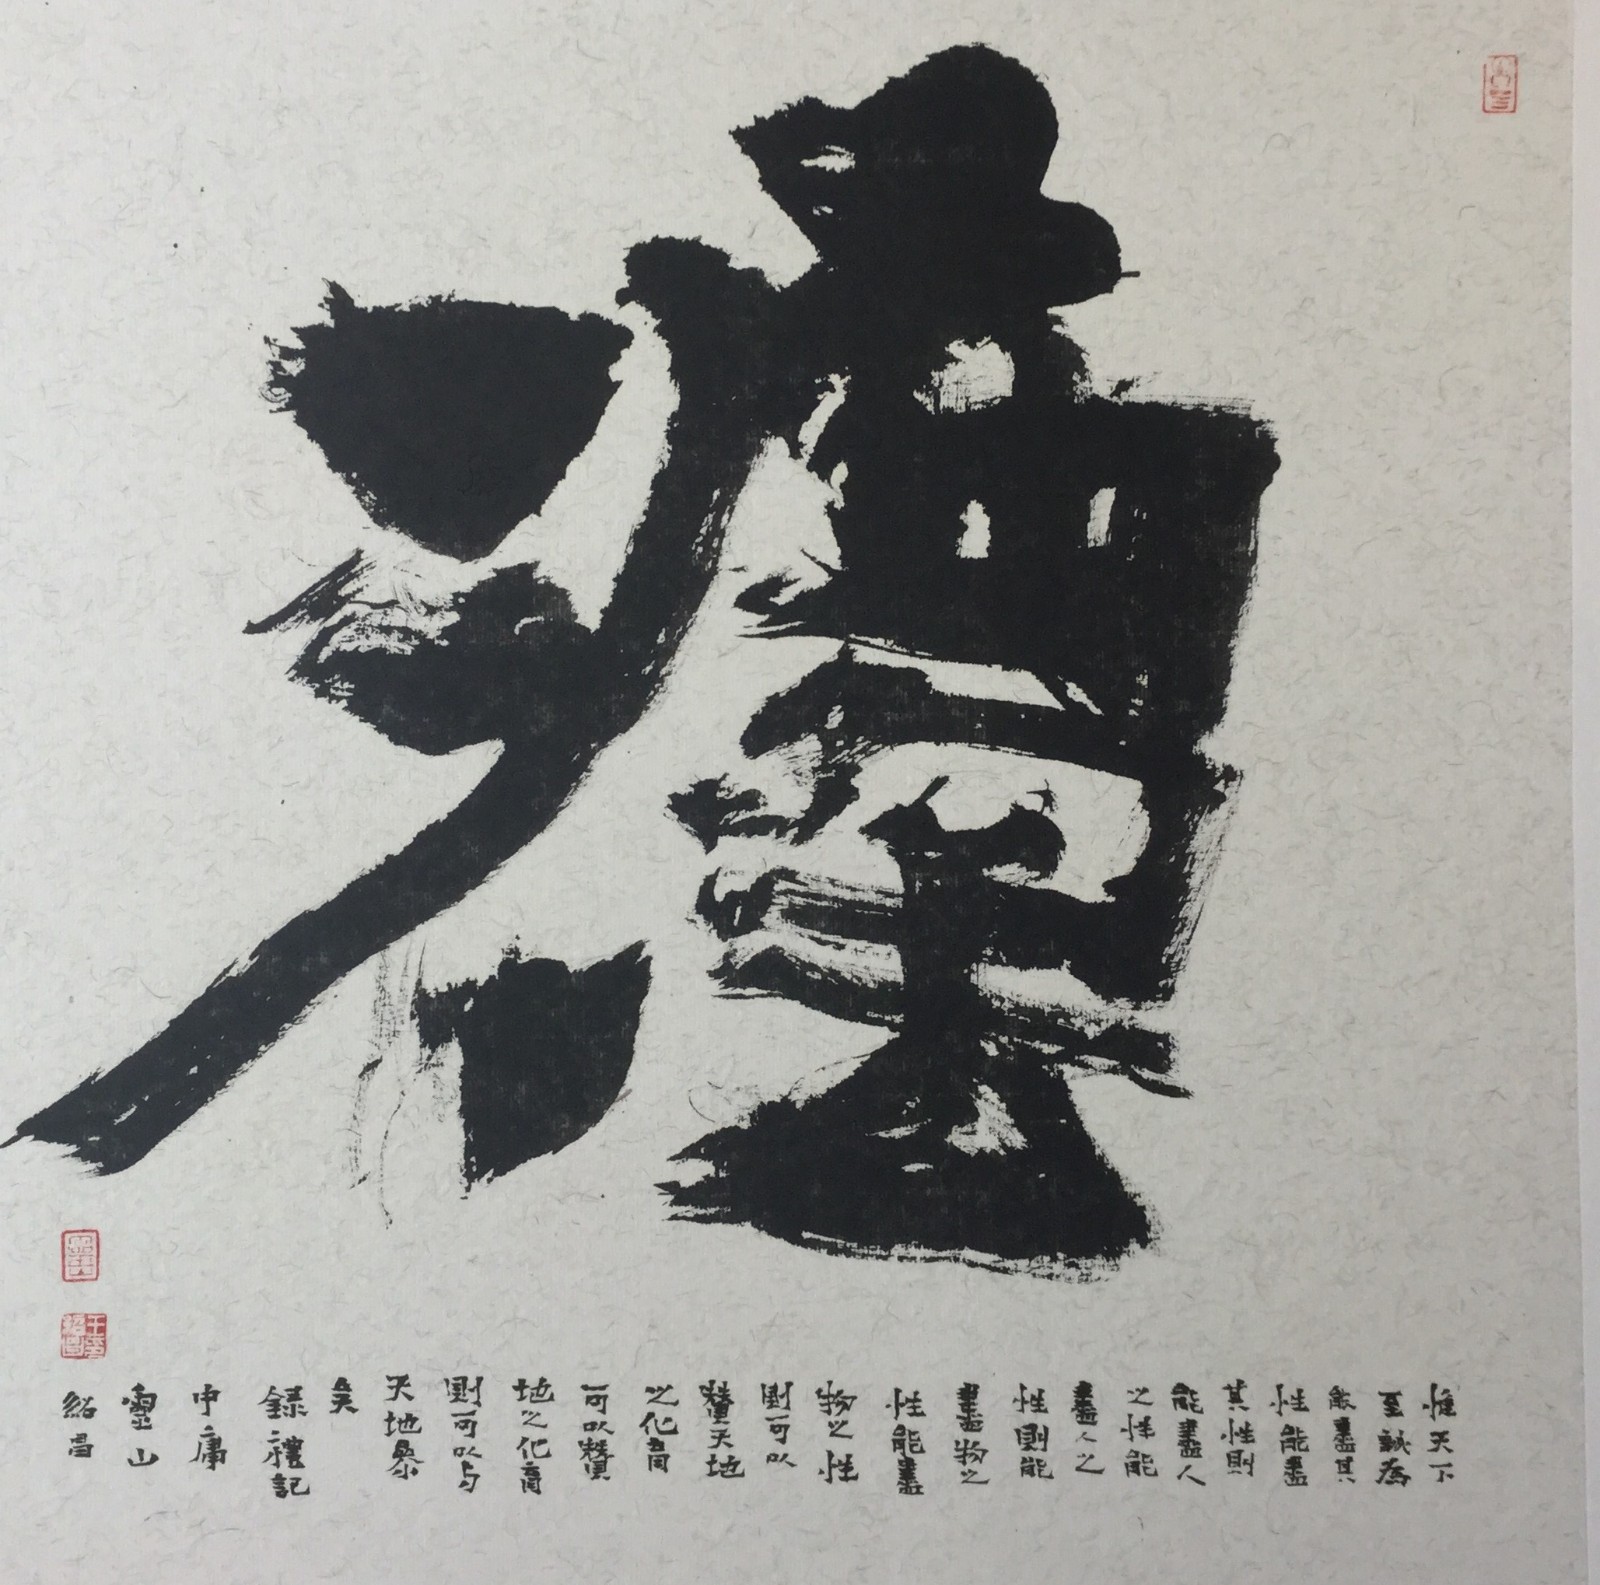 惟天下
至誠為
能盡其
性能盡
其性則
能盡人
之性能
盡人之
性則能
盡物之
性能盡
物之性
則可以
贊天地
之化育
可以贊
地之化育
則可以与
天地叅
矣
錄禮記
中庸
靈山
紹昌